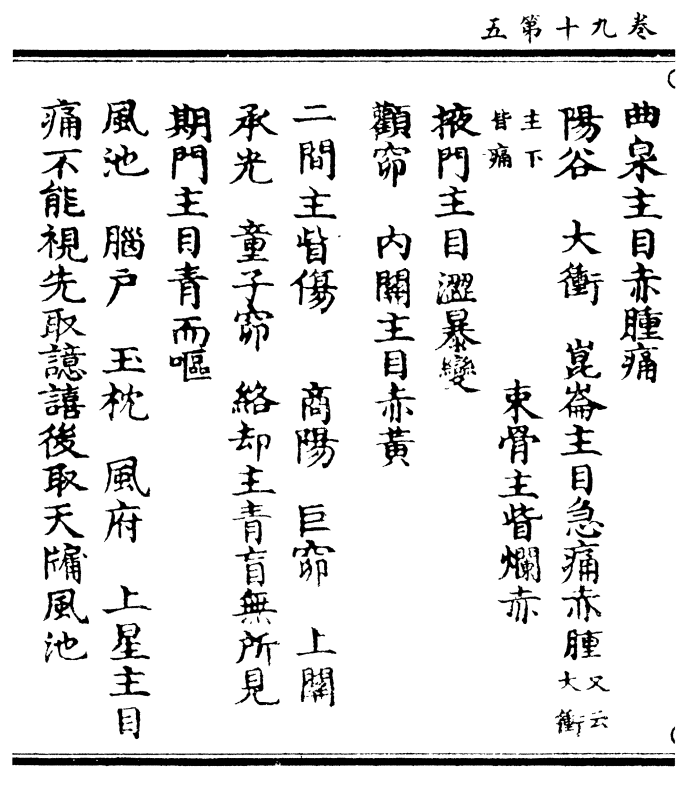 卷九十第五
曲泉主目赤腫痛
陽谷 大衝 崑崙主目急痛赤腫又云大衝
主下眥痛 束骨主眥爛赤
掖門主目澀暴變
顴窌 內關主目赤黃
二間主眥傷 商陽 巨窌 上關
承光 童子窌 絡却主青盲無所見
期門主目青而嘔
風池 腦戶 玉枕 風府 上星主目
痛不能視先取譩譆後取天牖風池